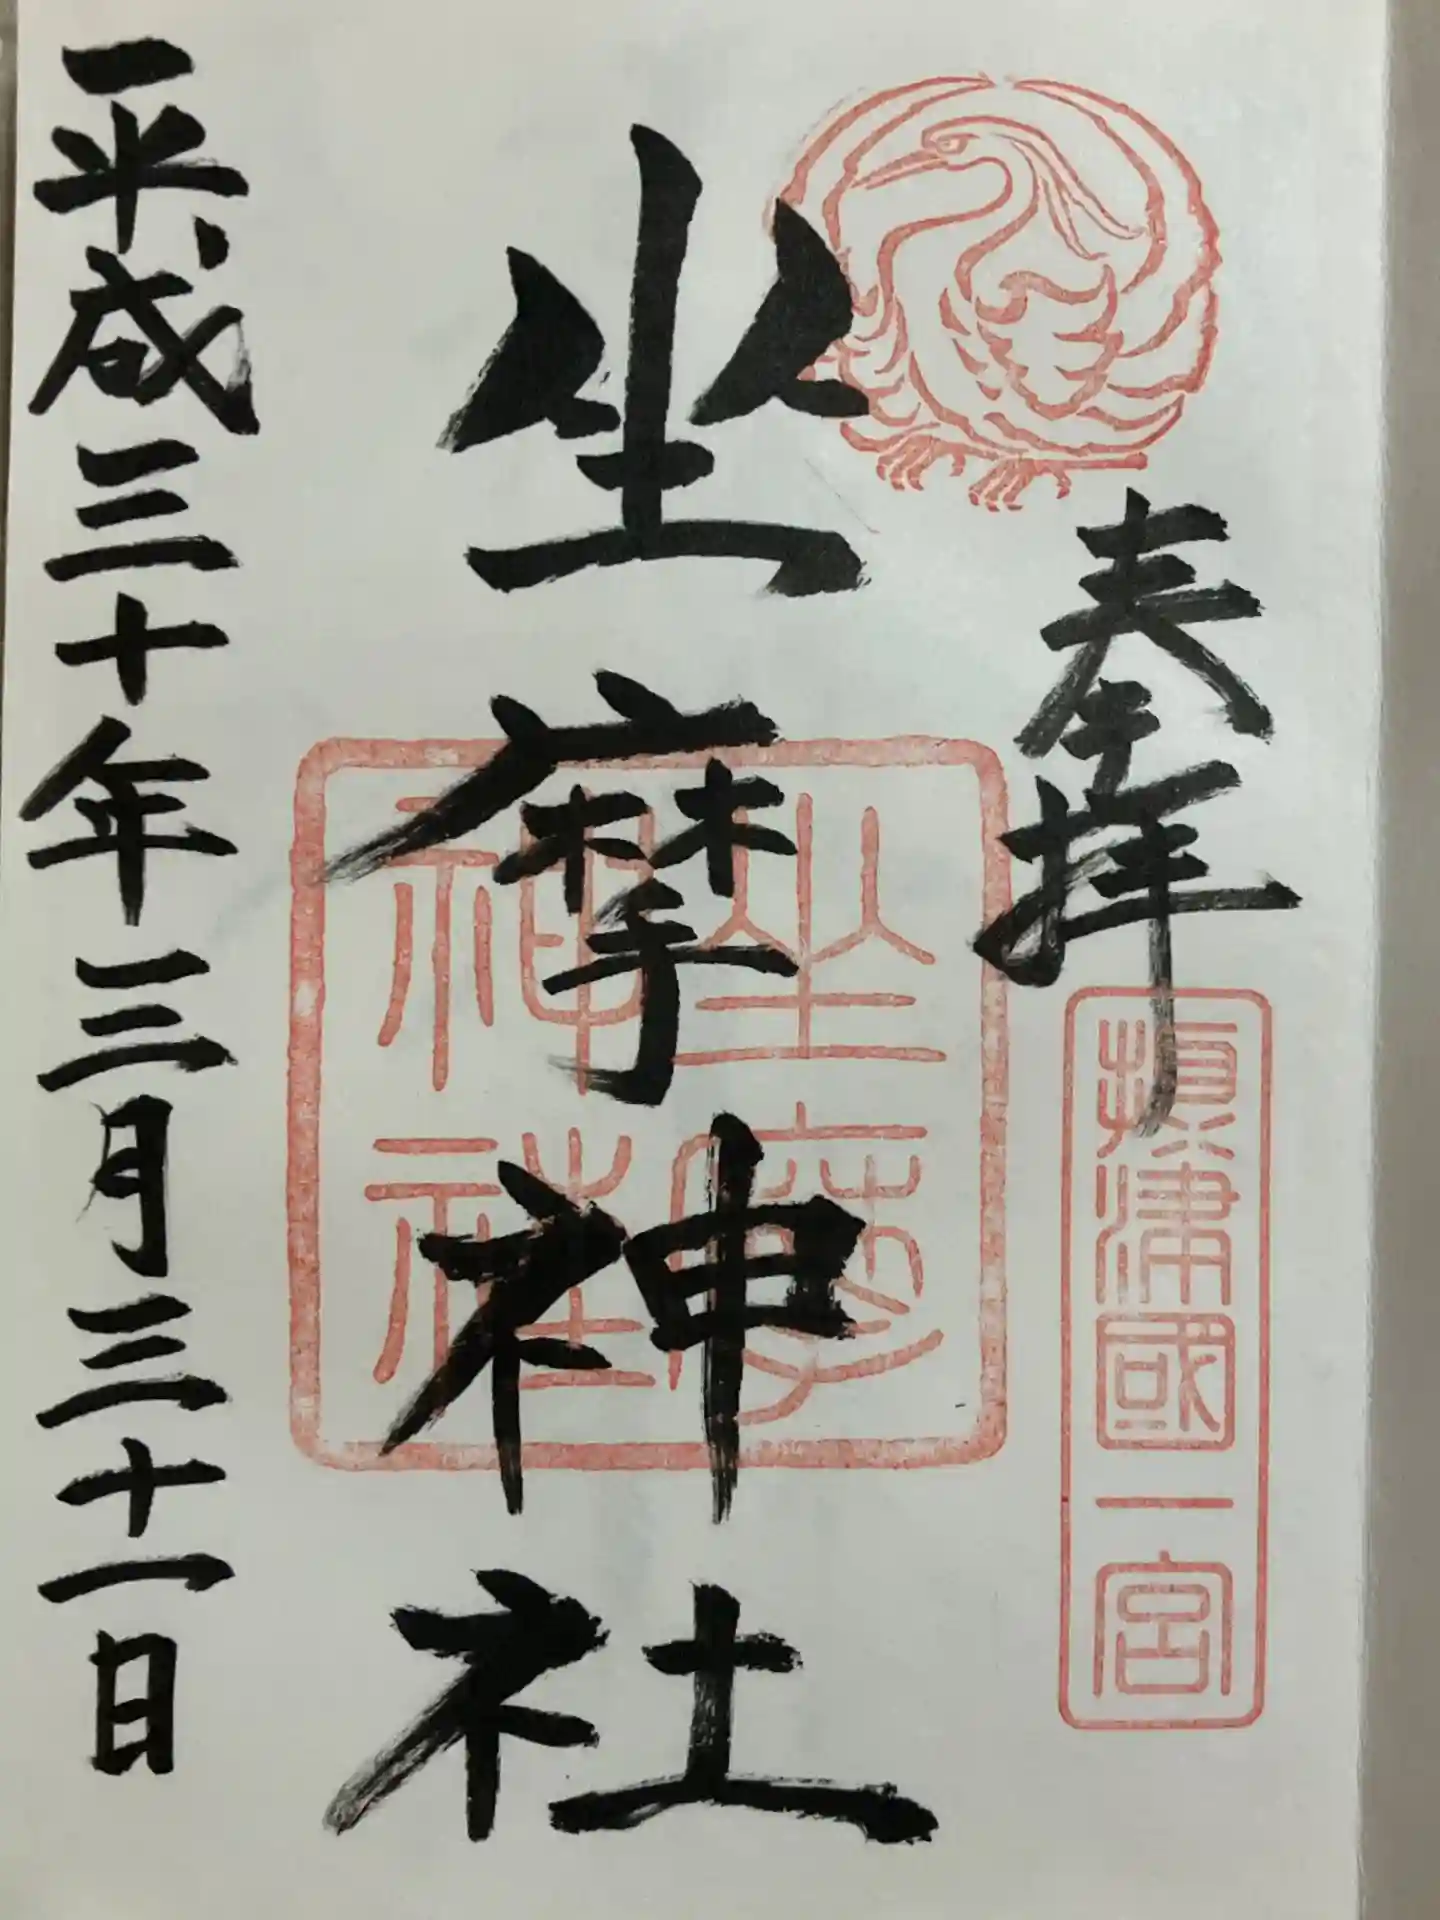 奉拝
摂津國一宮
坐摩神社
坐摩神社
平成三十年三月三十一日